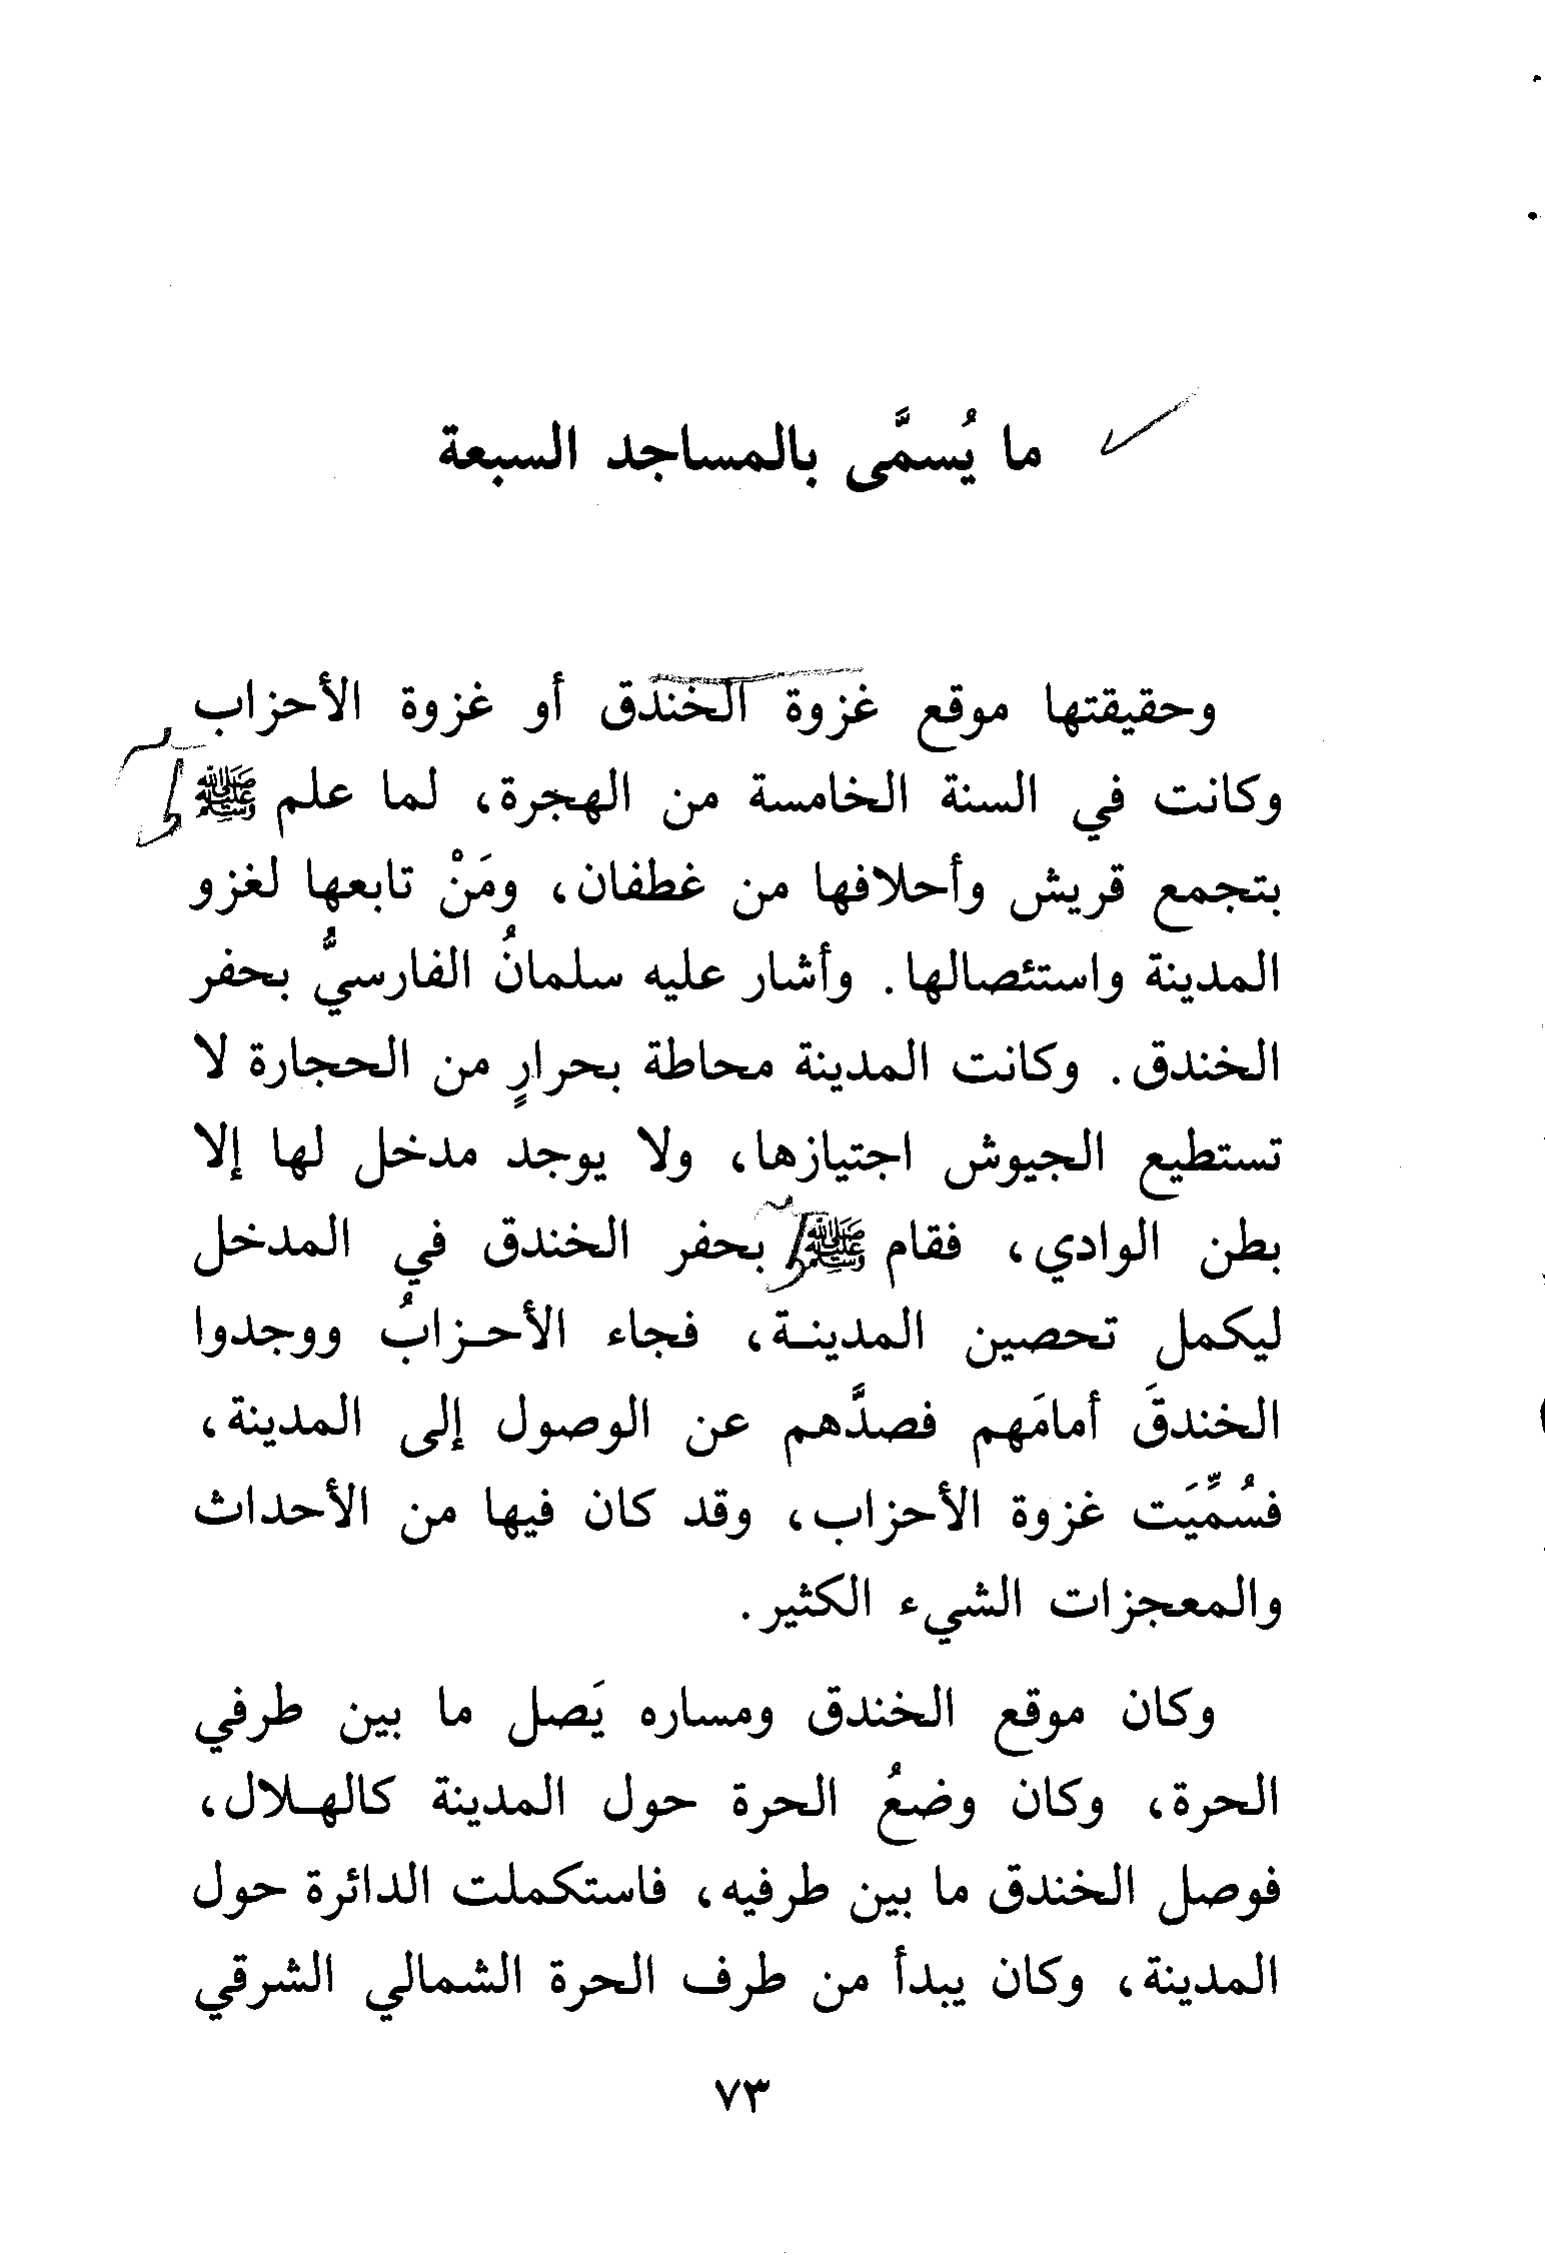 ما يُسمَّى بالمساجد السبعة
وحقيقتها موقع غزوة الخندق أو غزوة الأحزاب
وكانت في السنة الخامسة من الهجرة، لما علم ﷺ
بتجمع قريش وأحلافها من غطفان، ومَنْ تابعها لغزو
المدينة واستئصالها. وأشار عليه سلمانُ الفارسيُّ بحفر
الخندق. وكانت المدينة محاطة بحرارٍ من الحجارة لا
تستطيع الجيوش اجتيازها، ولا يوجد مدخل لها إلا
بطن الوادي، فقام ﷺ بحفر الخندق في المدخل
ليكمل تحصين المدينـة، فجاء الأحـزابُ ووجدوا
الخندقَ أمامَهم فصدَّهم عن الوصول إلى المدينة،
فسُمِّيَت غزوة الأحزاب، وقد كان فيها من الأحداث
والمعجزات الشيء الكثير.
وكان موقع الخندق ومساره يَصل ما بين طرفي
الحرة، وكان وضعُ الحرة حول المدينة كالهـلال،
فوصل الخندق ما بين طرفيه، فاستكملت الدائرة حول
المدينة، وكان يبدأ من طرف الحرة الشمالي الشرقي
٧٣